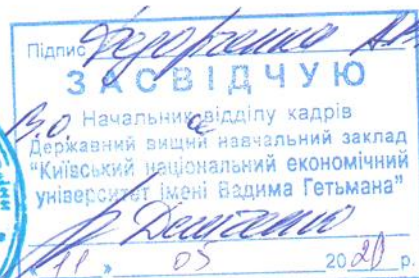 Підпис Федорченко А.
ЗАСВІДЧУЮ
В.О. Начальник відділу кадрів
Державний вищий навчальний заклад
"Київський національний економічний
університет імені Вадима Гетьмана"
"11" 05 2020 р.